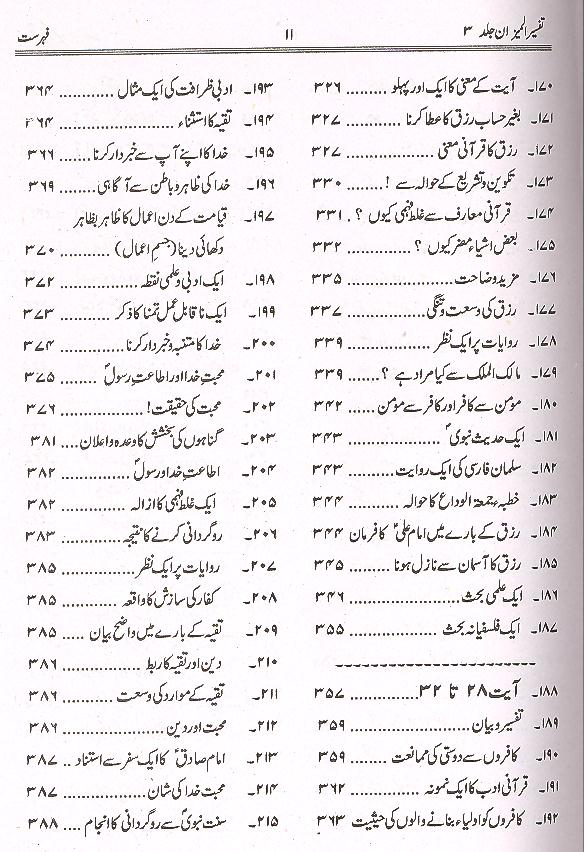 تفسیر المیزان جلد ۳
۱۱
فہرست
۱۷۰۔ آیت کے معنی کا ایک اور پہلو .......... ۳۲۶
۱۷۱۔ بغیر حساب رزق کا عطا کرنا .......... ۳۲۷
۱۷۲۔ رزق کا قرآنی معنی .......... ۳۲۷
۱۷۳۔ تکوین و تشریع کے حوالہ سے ! .......... ۳۳۰
۱۷۴۔ قرآنی معارف سے غلط فہمی کیوں ؟ . ۳۳۱
۱۷۵۔ بعض اشیاء مضر کیوں ؟ .......... ۳۳۲
۱۷۶۔ مزید وضاحت .......... ۳۳۵
۱۷۷۔ رزق کی وسعت و تنگی .......... ۳۳۷
۱۷۸۔ روایات پر ایک نظر .......... ۳۳۹
۱۷۹۔ مالک الملک سے کیا مراد ہے ؟ ....... ۳۳۹
۱۸۰۔ مؤمن سے کافر اور کافر سے مؤمن ..... ۳۴۲
۱۸۱۔ ایک حدیث نبویؐ .......... ۳۴۳
۱۸۲۔ سلمان فارسی کی ایک روایت .......... ۳۴۳
۱۸۳۔ خطبہء حجۃ الوداع کا حوالہ .......... ۳۴۴
۱۸۴۔ رزق کے بارے میں امام علیؑ کا فرمان ۳۴۴
۱۸۵۔ رزق کا آسمان سے نازل ہونا ....... ۳۴۵
۱۸۶۔ ایک علمی بحث .......... ۳۴۶
۱۸۷۔ ایک فلسفیانہ بحث .......... ۳۵۵
۱۸۸۔ آیت ۲۸ تا ۳۲ .......... ۳۵۷
۱۸۹۔ تفسیر و بیان .......... ۳۵۹
۱۹۰۔ کافروں سے دوستی کی ممانعت ....... ۳۵۹
۱۹۱۔ قرآنی ادب کا ایک نمونہ .......... ۳۶۲
۱۹۲۔ کافروں کو اولیاء بنانے والوں کی حیثیت ۳۶۳
۱۹۳۔ ادبی ظرافت کی ایک مثال .......... ۳۶۴
۱۹۴۔ تقیہ کا استثناء .......... ۳۶۴
۱۹۵۔ خدا کا اپنے آپ سے خبردار کرنا ....... ۳۶۶
۱۹۶۔ خدا کی ظاہر و باطن سے آگاہی ....... ۳۶۹
۱۹۷۔ قیامت کے دن اعمال کا ظاہر بظاہر
دکھائی دینا (جسم اعمال) .......... ۳۷۰
۱۹۸۔ ایک ادبی و علمی نقطہ .......... ۳۷۲
۱۹۹۔ ایک ناقابل عمل تمنا کا ذکر .......... ۳۷۳
۲۰۰۔ خدا کا متنبہ و خبردار کرنا .......... ۳۷۴
۲۰۱۔ محبتِ خدا اور اطاعتِ رسولؐ ........ ۳۷۵
۲۰۲۔ محبت کی حقیقت! .......... ۳۷۶
۲۰۳۔ گناہوں کی بخشش کا وعدہ و اعلان .... ۳۸۱
۲۰۴۔ اطاعتِ خدا و رسولؐ .......... ۳۸۲
۲۰۵۔ ایک غلط فہمی کا ازالہ .......... ۳۸۲
۲۰۶۔ روگردانی کرنے کا نتیجہ .......... ۳۸۳
۲۰۷۔ روایات پر ایک نظر .......... ۳۸۵
۲۰۸۔ کفار کی سازش کا واقعہ .......... ۳۸۵
۲۰۹۔ تقیہ کے بارے میں واضح بیان ..... ۳۸۵
۲۱۰۔ دین اور تقیہ کا ربط .......... ۳۸۶
۲۱۱۔ تقیہ کے موارد کی وسعت .......... ۳۸۶
۲۱۲۔ محبت اور دین .......... ۳۸۶
۲۱۳۔ امام صادقؑ کا ایک سفر سے استناد .. ۳۸۷
۲۱۴۔ محبت خدا کی شان .......... ۳۸۷
۲۱۵۔ سنت نبویؐ سے روگردانی کا انجام .... ۳۸۸